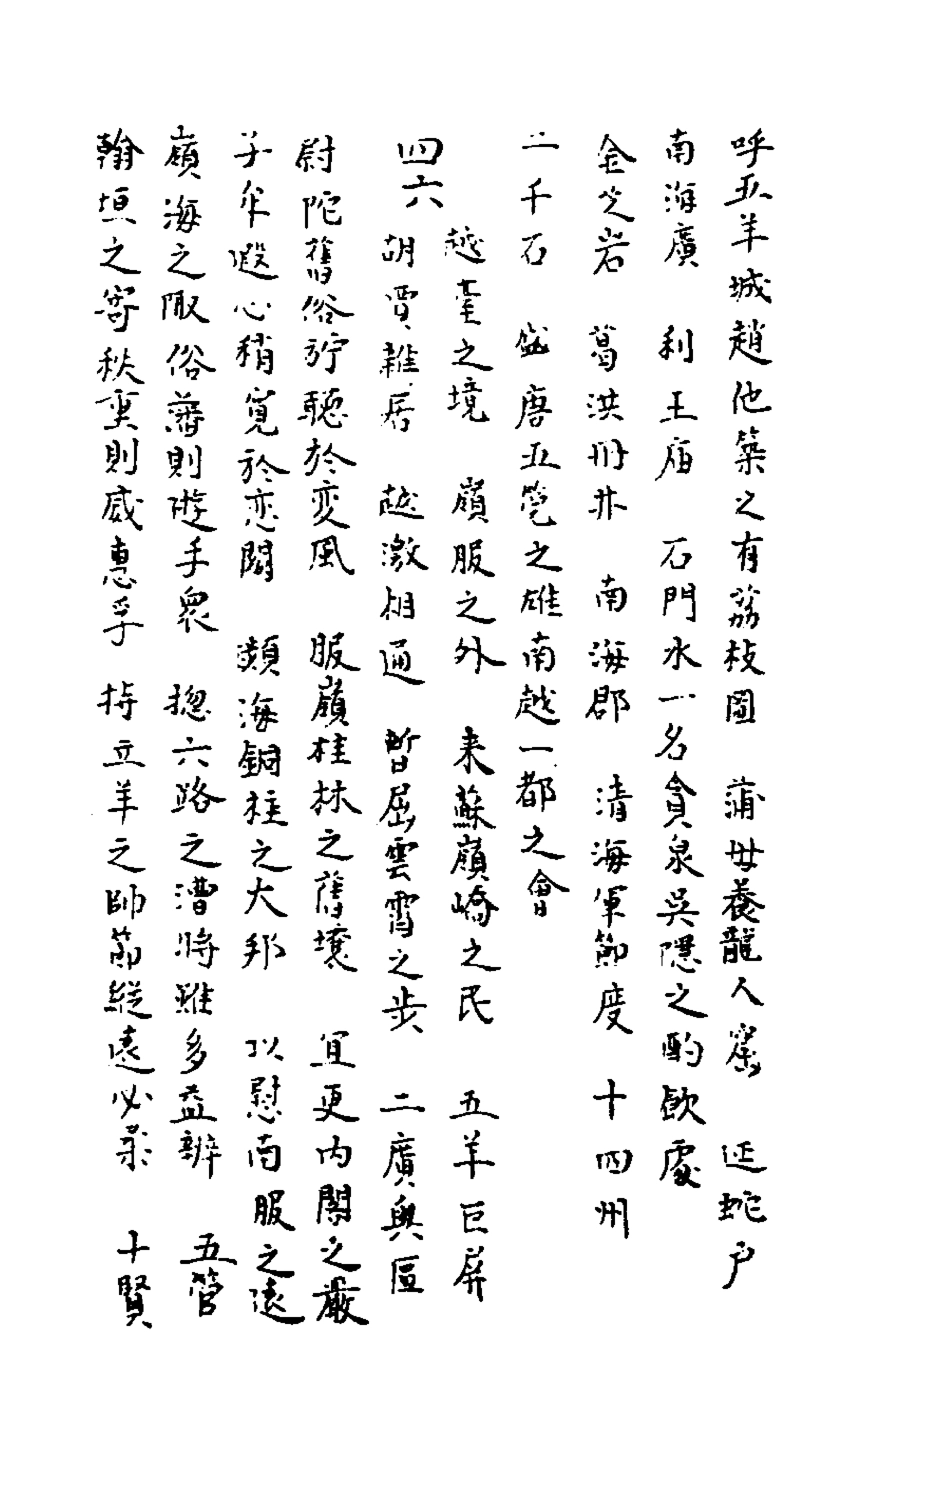 呼五羊城趙他築之有荔枝圖　蒲母養龍人窟　延蛇戶
南海廣　利王庙　石門水一名貪泉吳隱之酌飲處
金芝岩　葛洪丹井　南海郡　清海軍節度　十四州
二千石　盛唐五筦之雄南越一都之會
四六
越臺之境　嶺服之外　来蘇嶺嶠之民　五羊巨屏
胡賈雜居　越激相通　暫屈雲霄之步　二廣奥區
尉陀舊俗㝉聴於变風　服嶺桂林之舊壤　宜更内閣之嚴
子牟遐心稍寬於恋闕　頻海銅柱之大邦　以慰南服之遠
嶺海之陬俗　則遊手衆　揔六路之漕将雖多益辦　五管
翰垣之寄秩重則威惠孚　持五羊之帥節縱遠必　十賢